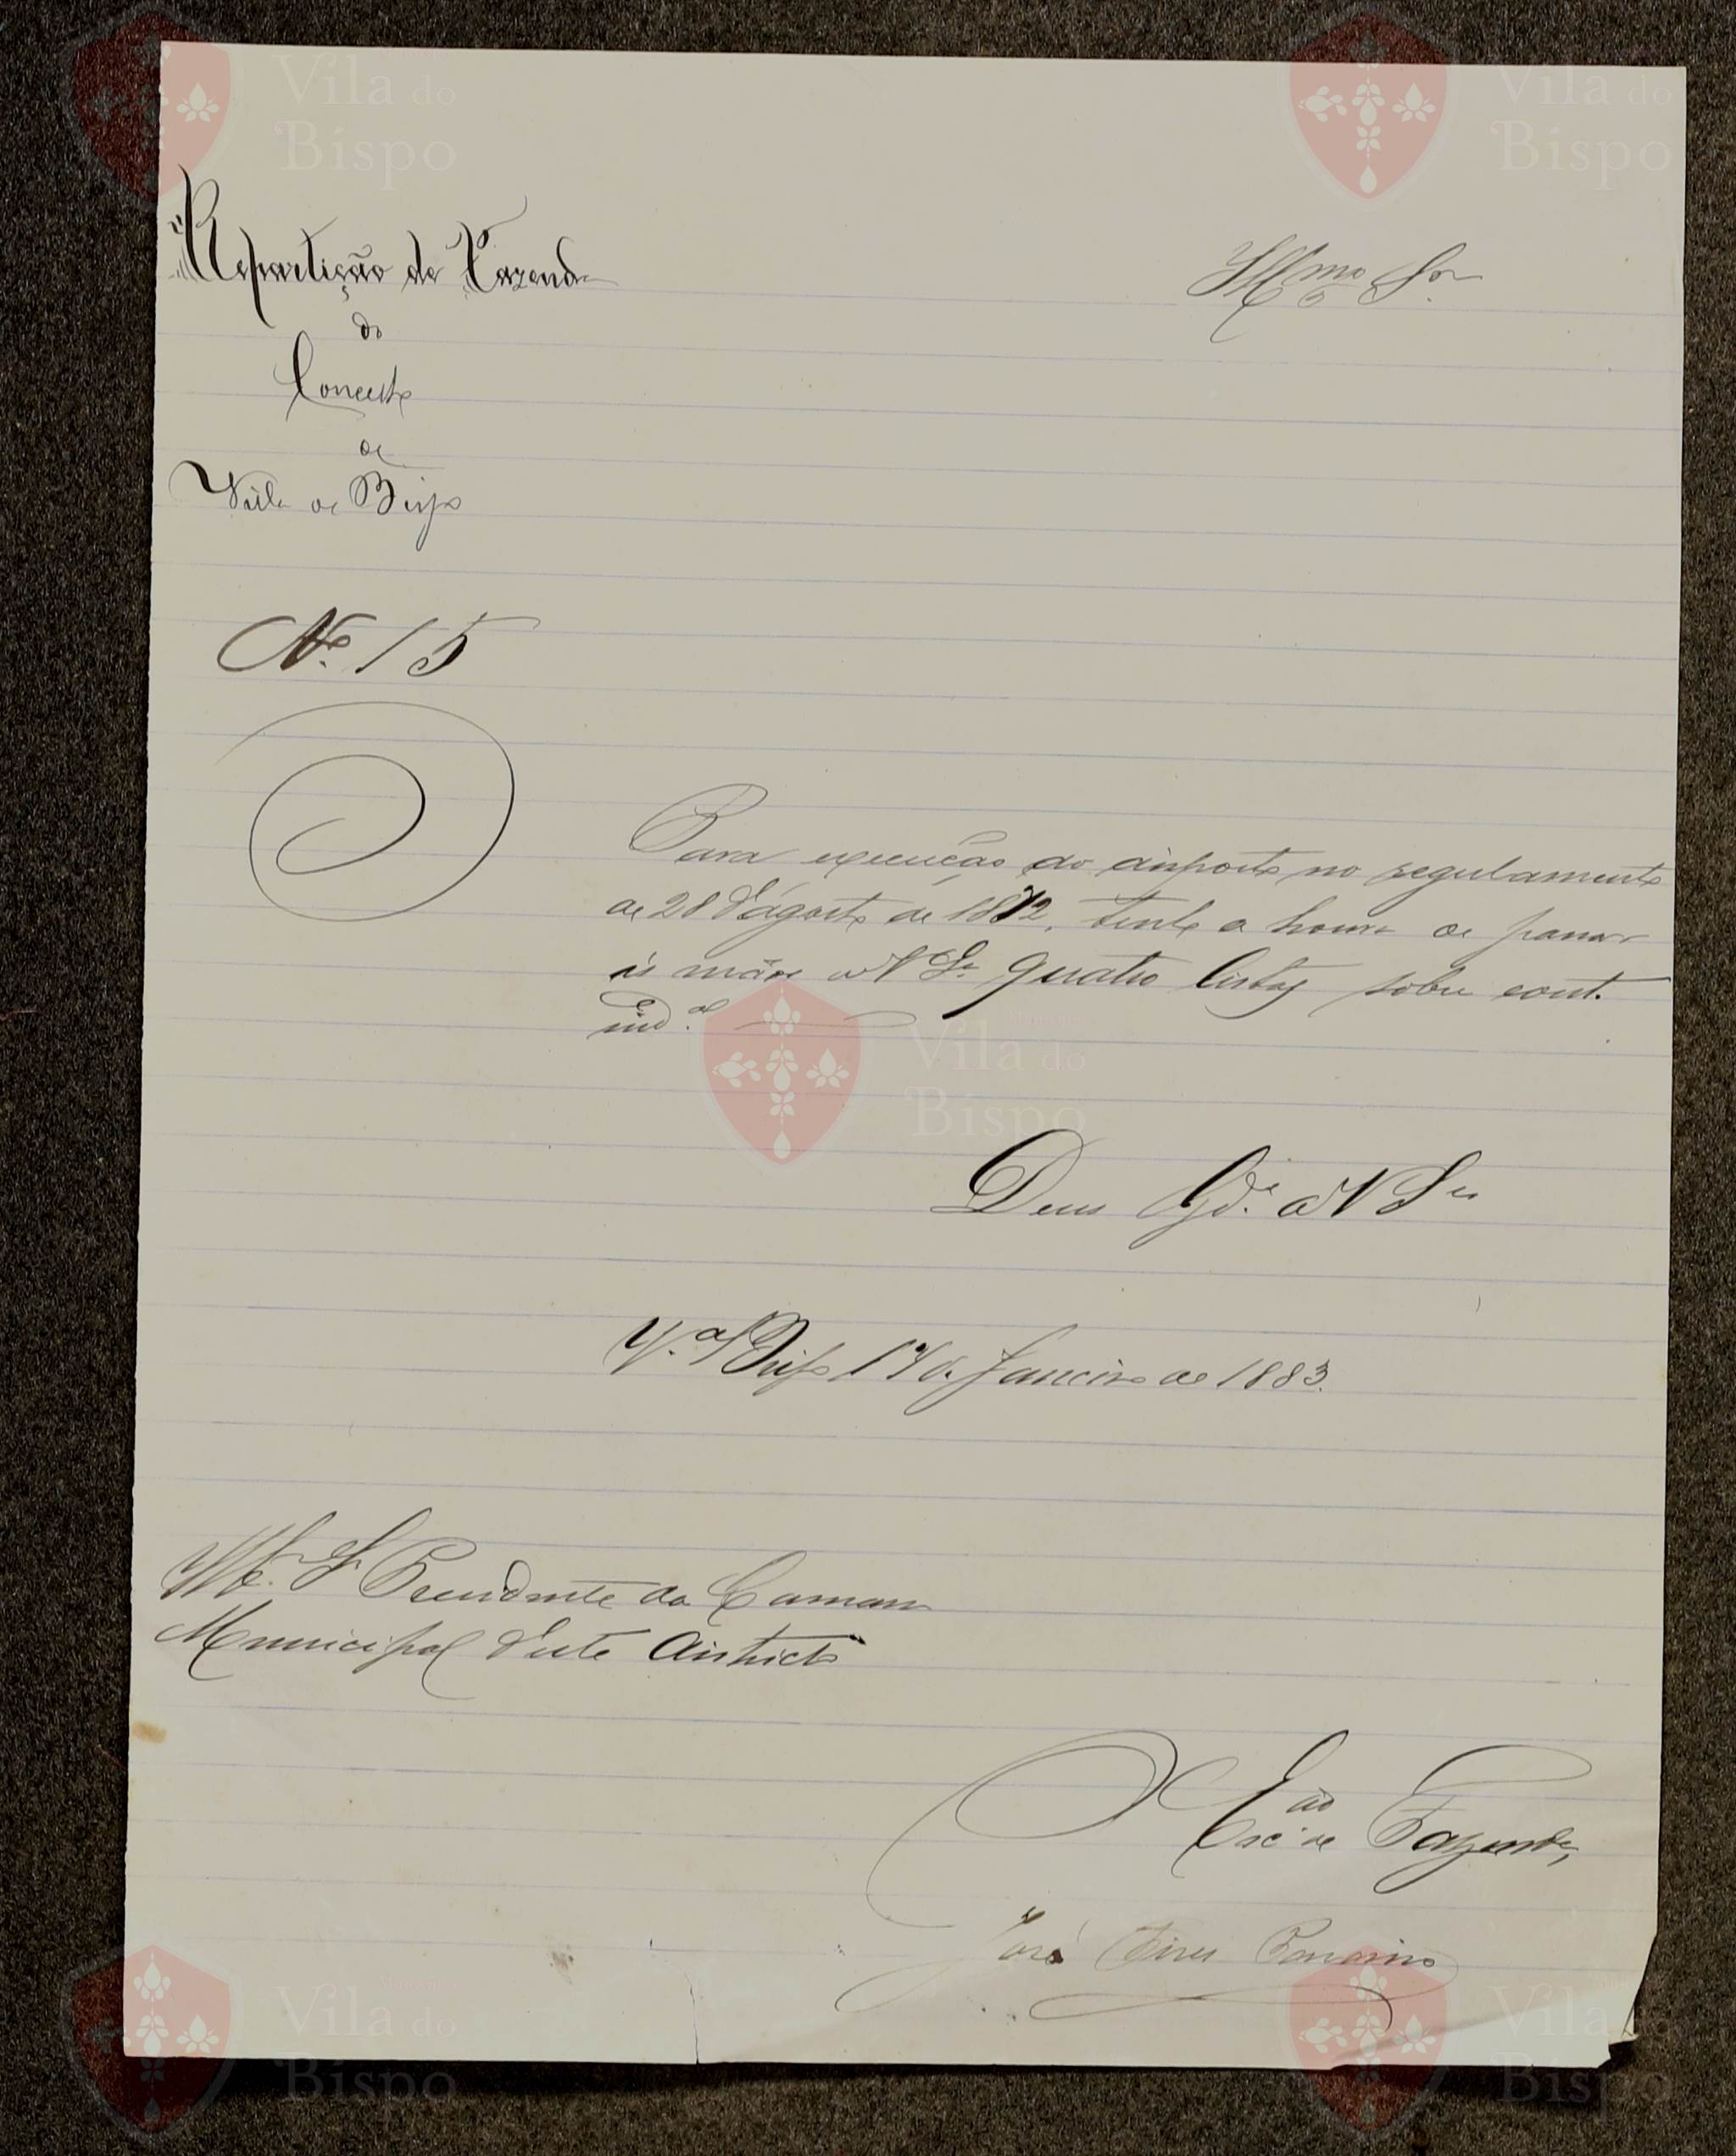 Repartição de Fazenda
do
Concelho
de
Villa do Bispo
Illmo Snr
Nº 15
Para execução do disposto no regulamento
de 28 d'agosto de 1872, tenho a honra de passar
ás mãos de V Sª quatro listas sobre cont.
ind.al
Deus Gde a V Sa
Vª Bispo 17 de Janeiro de 1883.
Illmo Sr Presidente da Camara
Municipal d'este districto
O Escão de Fazenda,
José Pires
Vila do Bispo
Vila do Bispo
Vila do Bispo
Vila do Bispo
Vila do Bispo